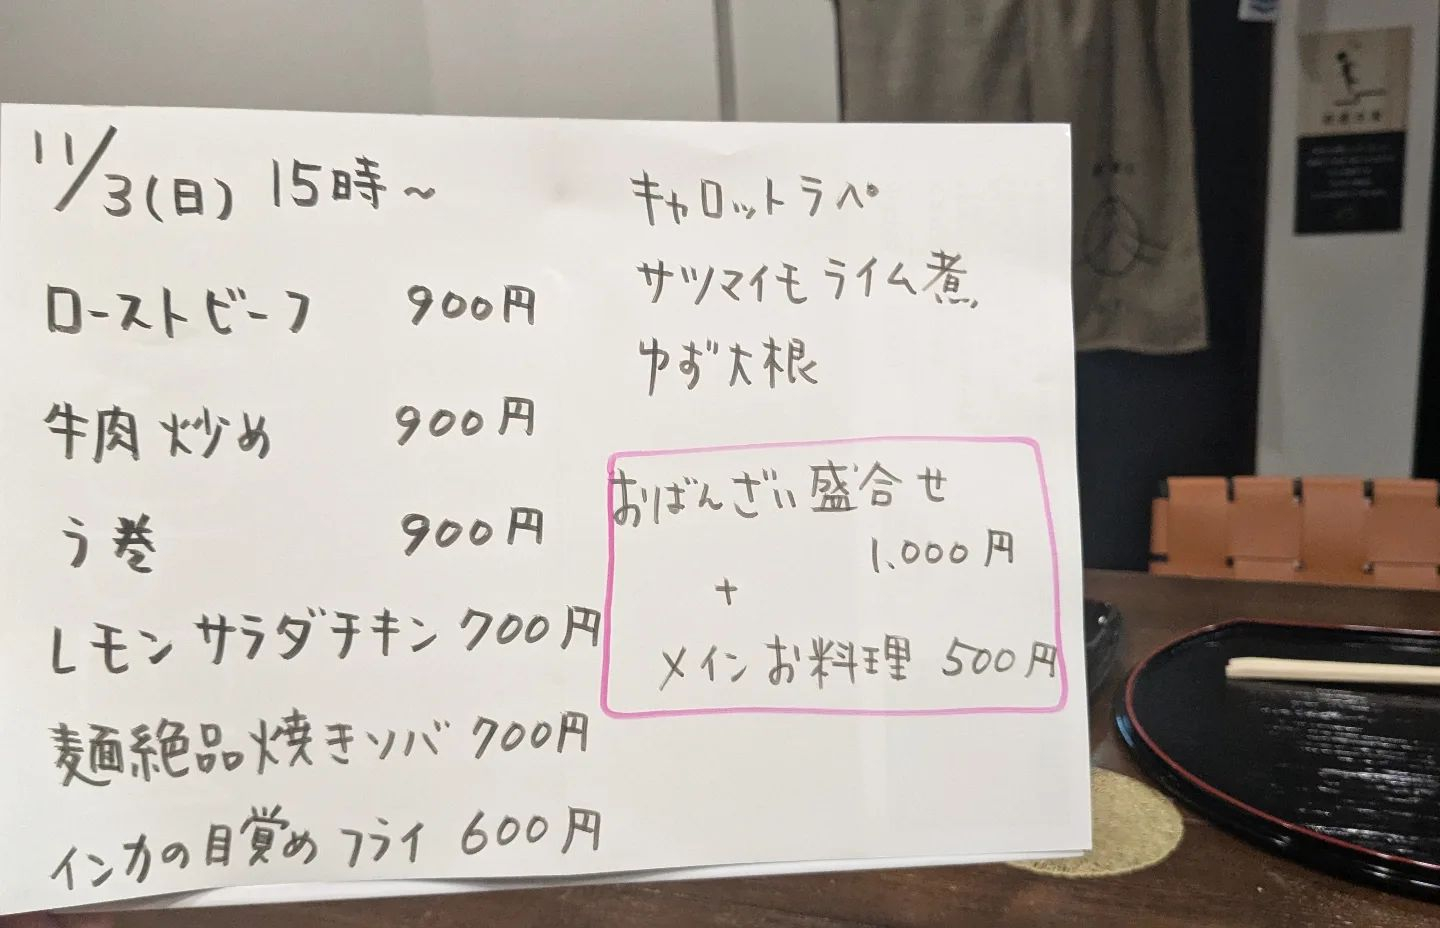 11/3(日) 15時~
ローストビーフ 900円
牛肉炒め 900円
う巻 900円
レモンサラダチキン 700円
麺絶品焼きソバ 700円
インカの目覚めフライ 600円
キャロットラペ
サツマイモライム煮
ゆず大根
おばんざい盛合せ
1.000円
+
メインお料理 500円